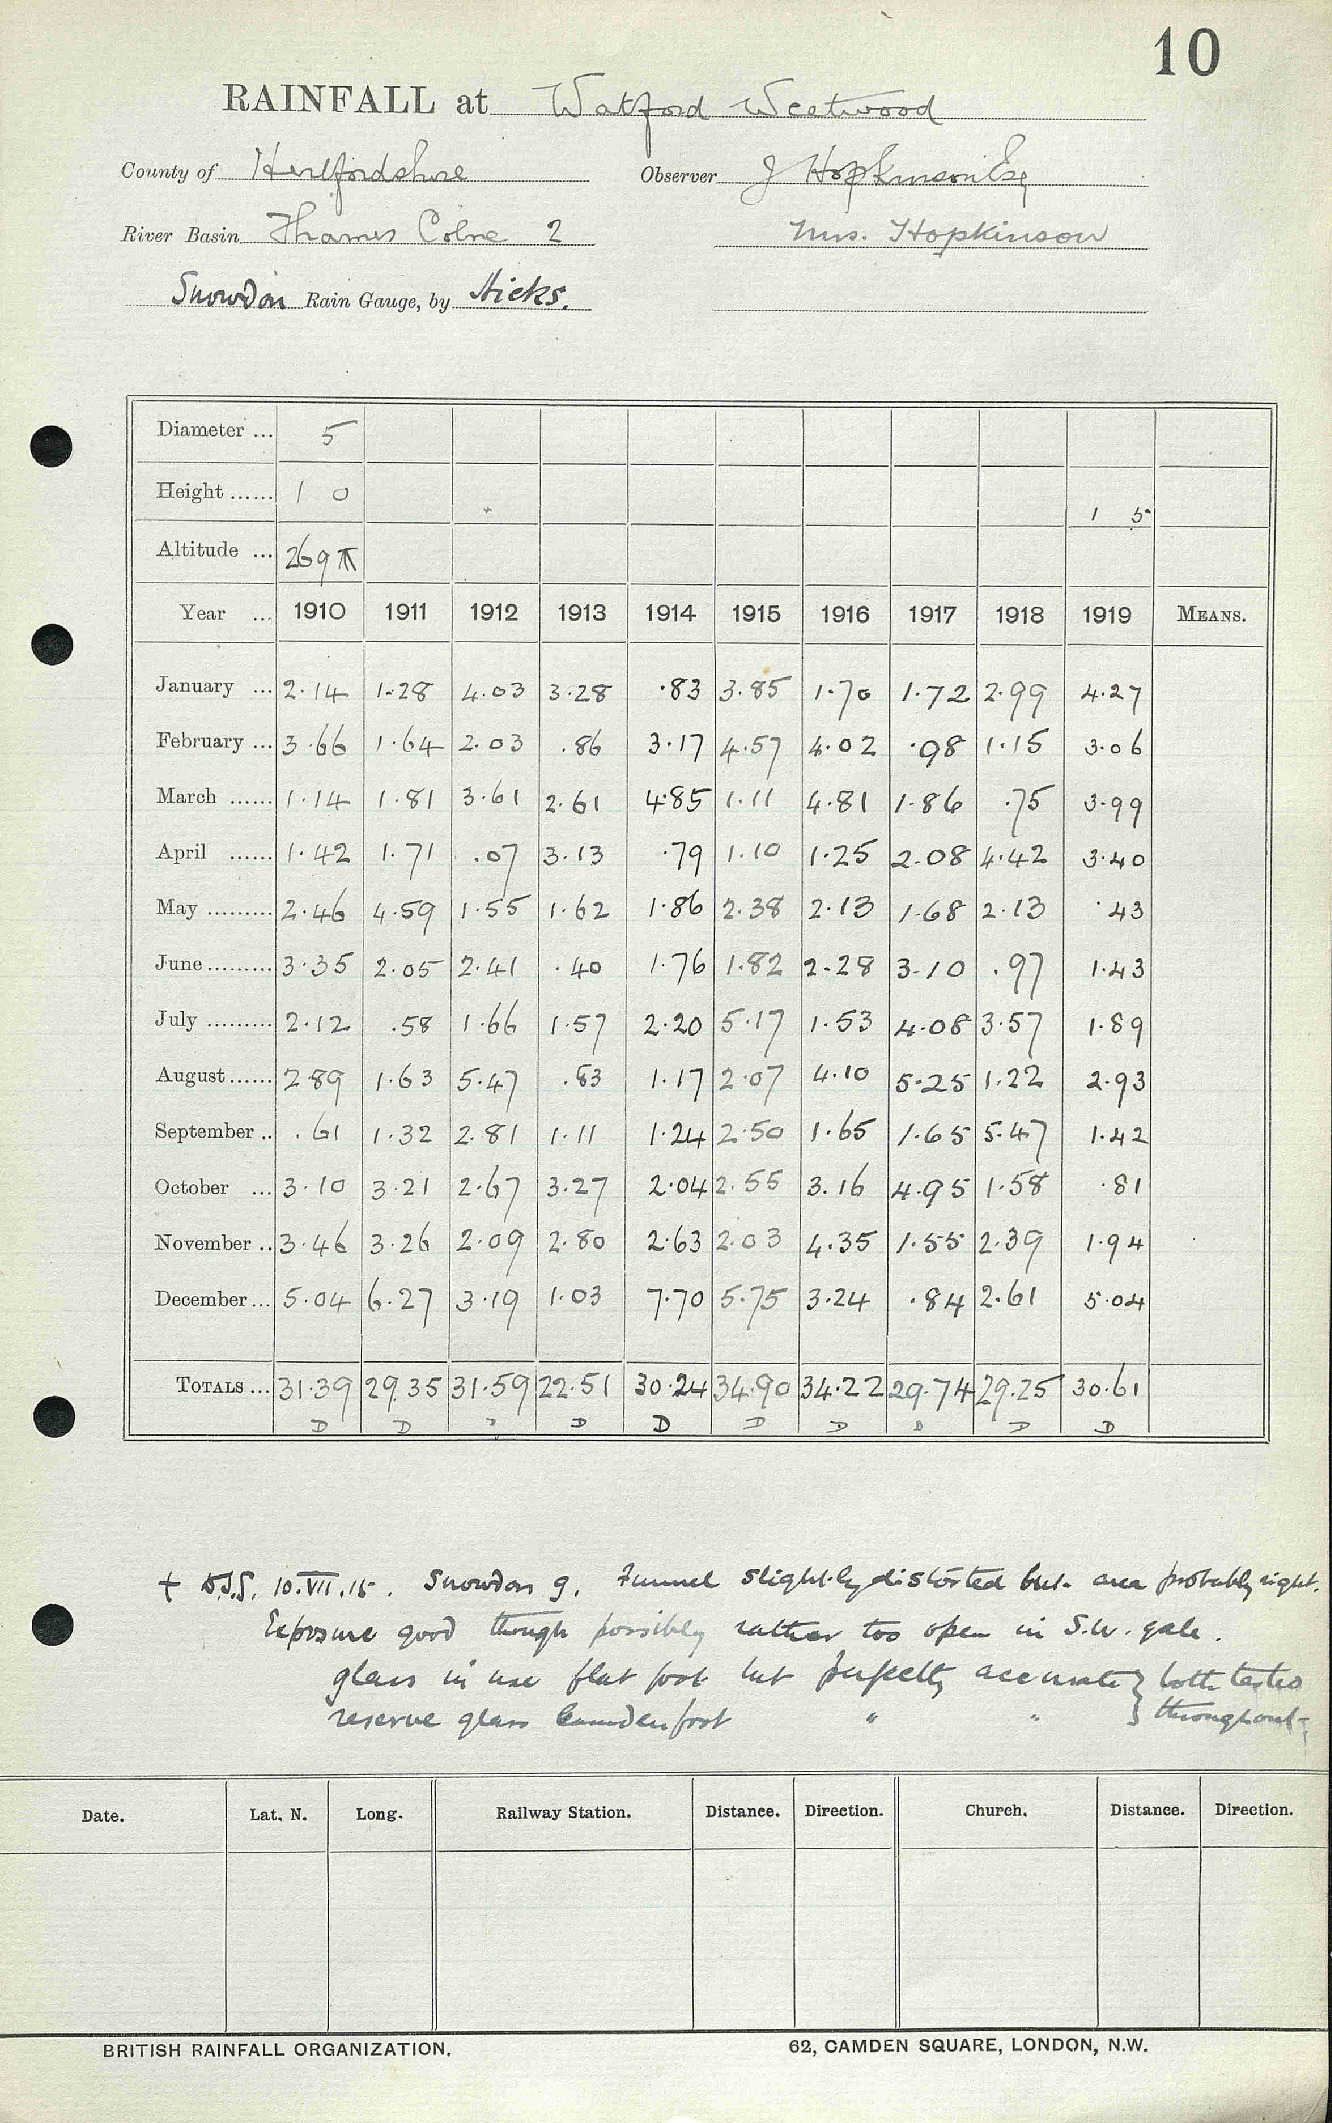 10
RAINFALL at Watford Westwood
County of Hertfordshire Observer J Hopkinson Esq
River Basin Thames Colne 2 Mrs. Hopkinson
Snowdon Rain Gauge, by Hicks.
Diameter ... 5
Height ...... 1 0 1 5
Altitude ... 269
Year ... 1910 1911 1912 1913 1914 1915 1916 1917 1918 1919 MEANS.
January ... 2.14 1.28 4.03 3.28 .83 3.85 1.70 1.72 2.99 4.27
February ... 3.66 1.64 2.03 .86 3.17 4.57 4.02 .98 1.15 3.06
March ...... 1.14 1.81 3.61 2.61 4.85 1.11 4.81 1.86 .75 3.99
April ...... 1.42 1.71 .07 3.13 .79 1.10 1.25 2.08 4.42 3.40
May ......... 2.46 4.59 1.55 1.62 1.86 2.38 2.13 1.68 2.13 .43
June ......... 3.35 2.05 2.41 .40 1.76 1.82 2.28 3.10 .97 1.43
July ......... 2.12 .58 1.66 1.57 2.20 5.17 1.53 4.08 3.57 1.89
August ...... 2.89 1.63 5.47 .83 1.17 2.07 4.10 5.25 1.22 2.93
September .. .61 1.32 2.81 1.11 1.24 2.50 1.65 1.65 5.47 1.42
October ... 3.10 3.21 2.67 3.27 2.04 2.55 3.16 4.95 1.58 .81
November .. 3.46 3.26 2.09 2.80 2.63 2.03 4.35 1.55 2.39 1.94
December ... 5.04 6.27 3.19 1.03 7.70 5.75 3.24 .84 2.61 5.04
TOTALS ... 31.39 29.35 31.59 22.51 30.24 34.90 34.22 29.74 29.25 30.61
D D D D D D D D D D
+ 10.VII.15. Snowdon g. Funnel slightly distorted but area probably right.
Exposure good though possibly rather too open in S.W. gale.
glass in use flat foot but perfectly accurate } both tested
reserve glass Camden foot " " } throughout
Date. Lat. N. Long. Railway Station. Distance. Direction. Church. Distance. Direction.
BRITISH RAINFALL ORGANIZATION. 62, CAMDEN SQUARE, LONDON, N.W.